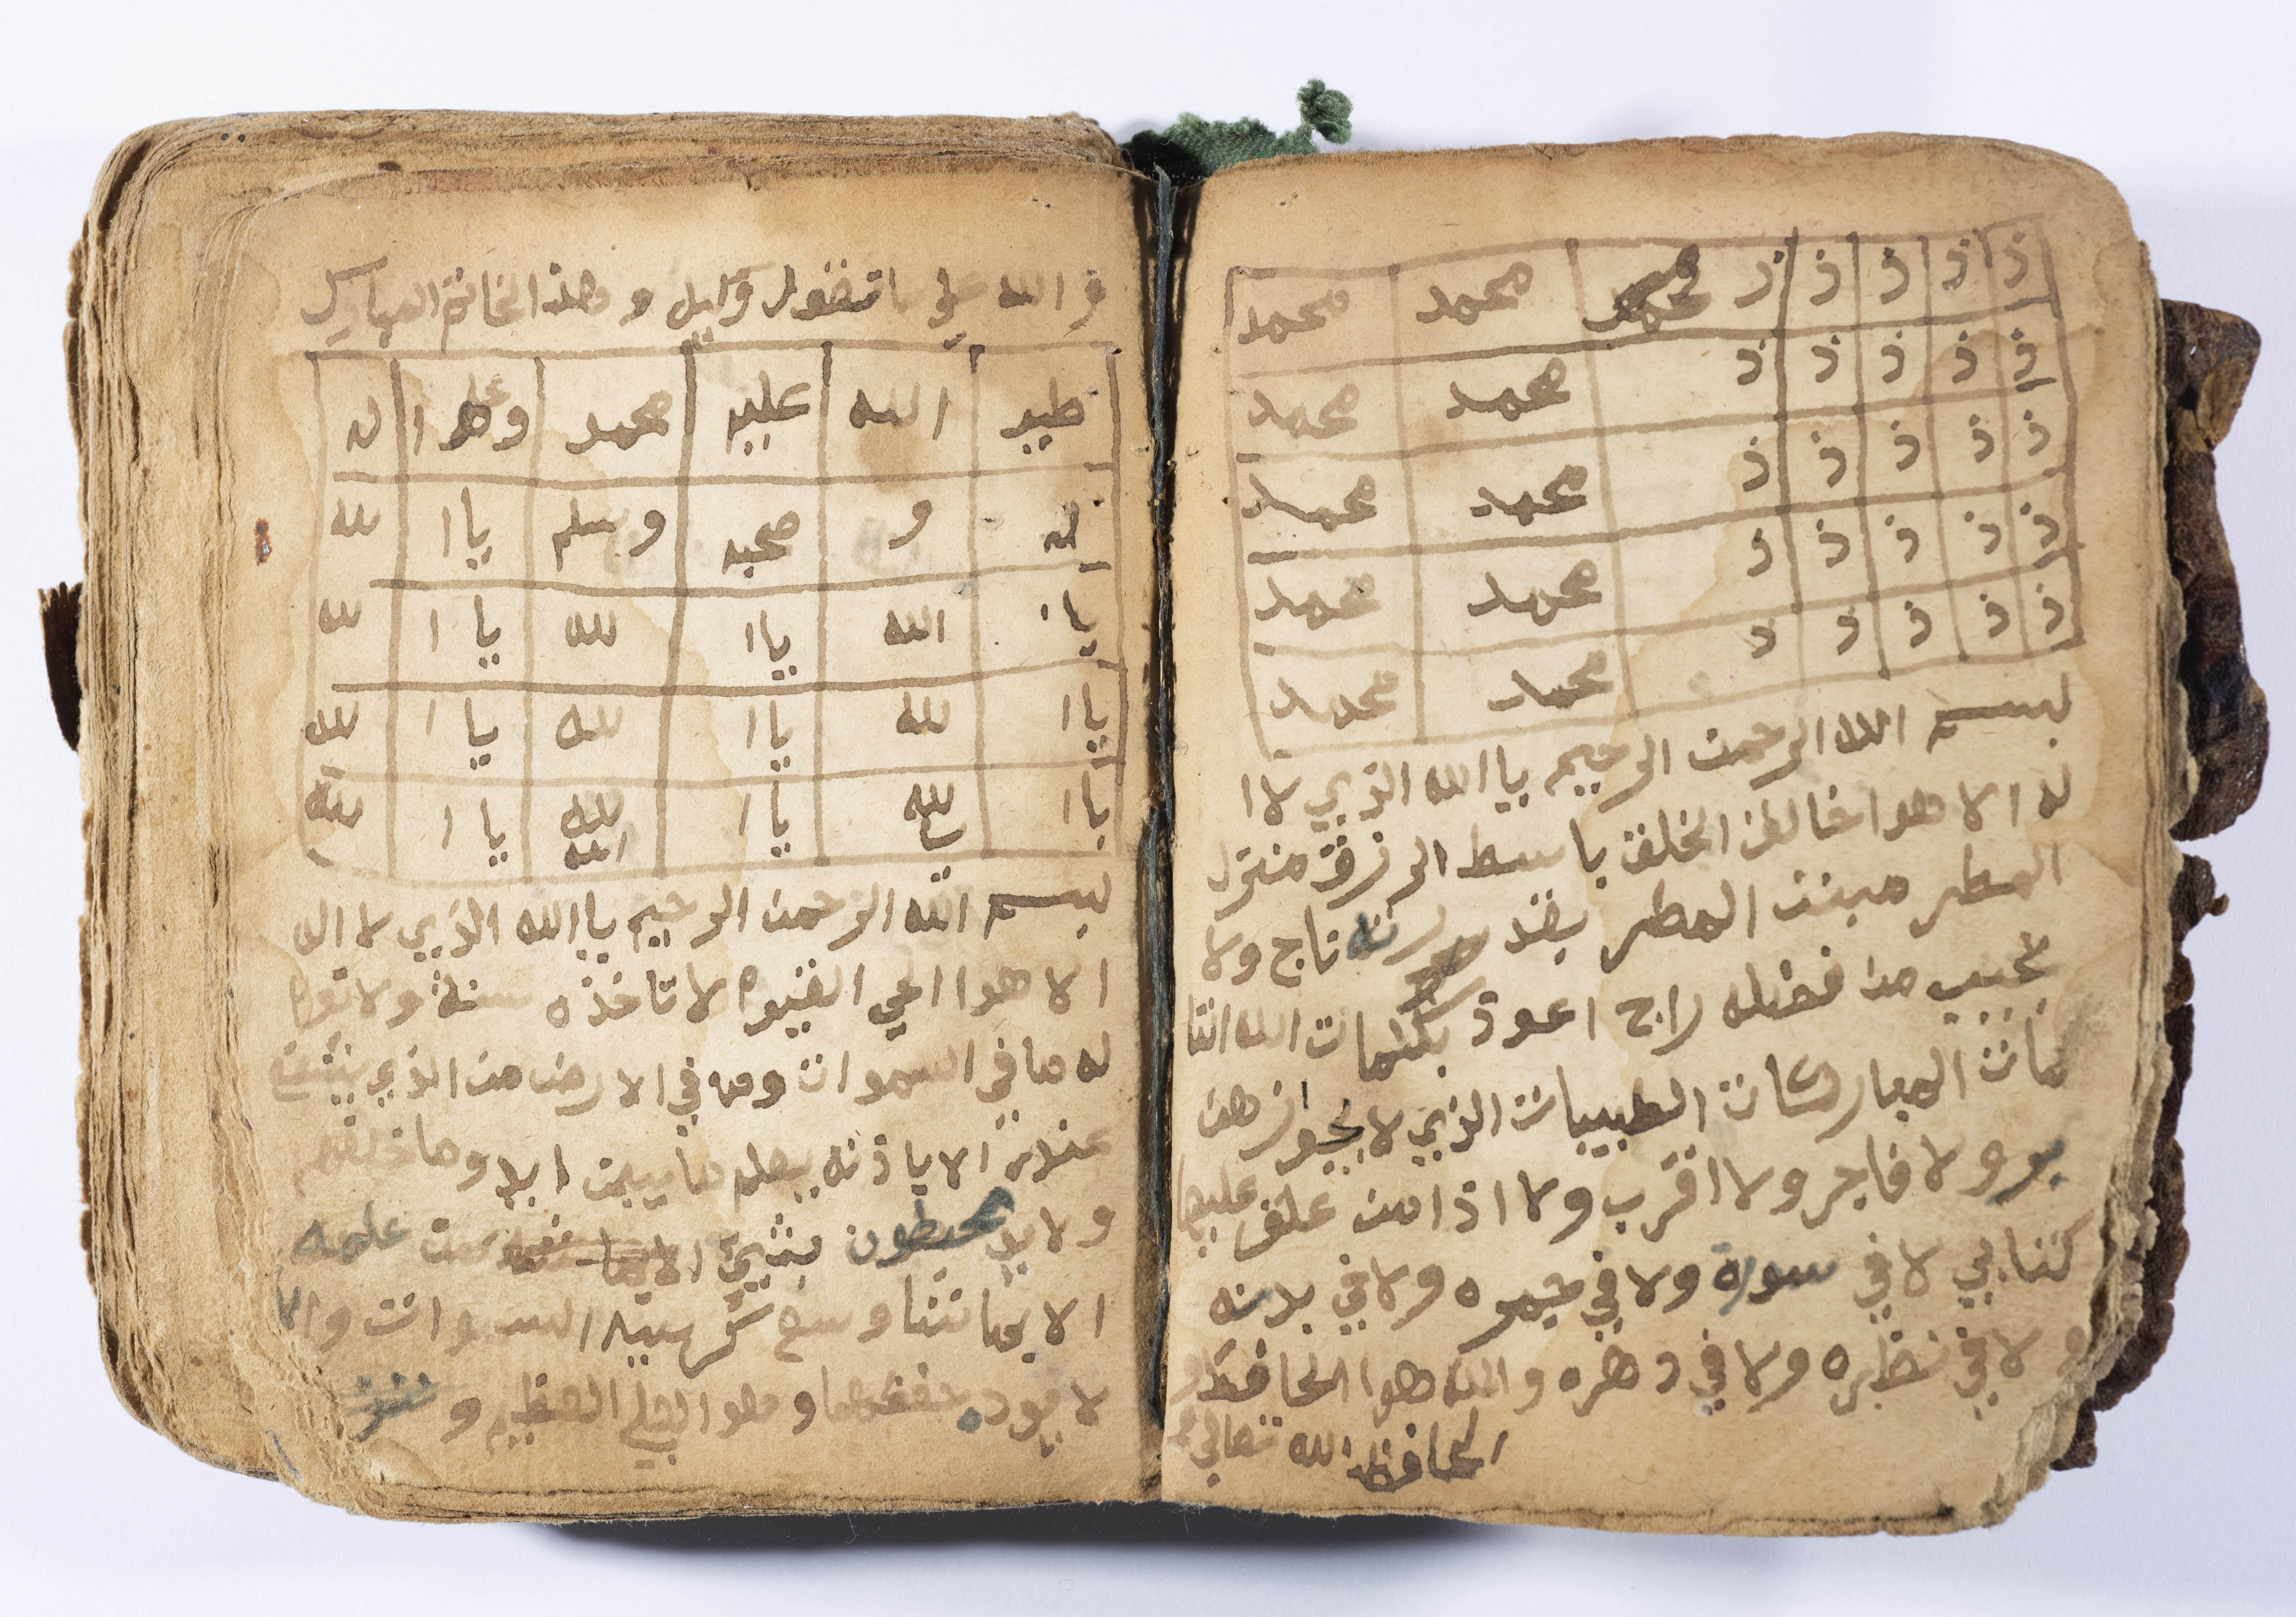 ذ ذ ذ ذ ذ محمد محمد محمد
ذ ذ ذ ذ ذ محمد محمد
ذ ذ ذ ذ ذ محمد محمد
ذ ذ ذ ذ ذ محمد محمد
ذ ذ ذ ذ ذ محمد محمد
بسم الله الرحمن الرحيم يا الله الذي لا ا
له الا هوا خالق الخلق باسط الرزق منزل
المطر مبنت المطر بقد رته تاج ولا
يخيب من فضله راج اعوذ بكلمات الله التا
مات المباركات الطيبات الذي لا يجوزهن
بر ولا فاجر ولا اقرب ولا اذا من علق عليها
كتابي لا في سورة ولا في ولا في بدنه
و لا في نظره ولا في دهره والله هوا الحافظ و
الحافظ الله تعالى
الله على ما تقول وكيل و هذا الخاتم المبارك
الله عليه محمد وعلا ا ل
له و صحبه وسلم يا ا لله
يا ا الله يا ا لله يا ا لله
يا ا لله يا ا لله يا ا لله
يا ا لله يا ا لله يا ا لله
الله
بسم الله الرحمن الرحيم يا الله الذي لا اله
الا هوا الحي القيوم لا تاخذه سنة ولا نوم
له ما في السموات وم في الارض من الذي يشفع
عنده الا ياذنه يعلم ما بين ايد وما خلفهم
ولا يد يحيطون بشيئ الا علمه
الا بما شا وسع كرسيه السموات والا
لا يود حفظهما وهوا العلي العظيم و